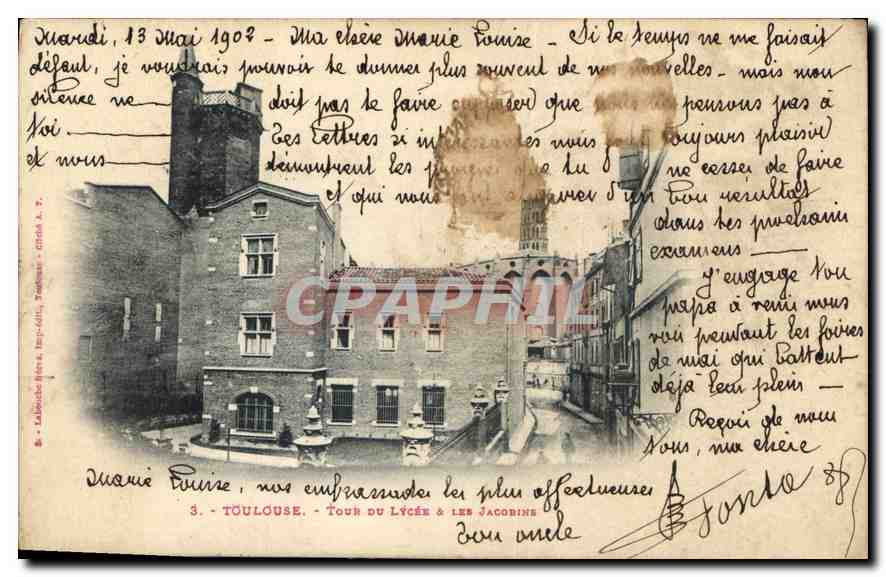 Mardi, 13 Mai 1902 - Ma chère Marie Louise - Si le temps ne me faisait
défaut, je voudrais pouvoir te donner plus souvent de nos nouvelles - mais mon
silence ne doit pas te faire supposer que nous ne pensons pas à
toi - Tes lettres si intéressantes nous font toujours plaisir
et nous démontrent les progrès que tu ne cesses de faire
et qui nous sont d'un bon résultat
dans tes prochain
examens -
J'engage ton
papa à venir nous
voir pendant les foires
de mai qui battent
déjà leur plein -
Reçois de nous
tous, ma chère
Marie Louise, nos embrassades les plus affectueuses
Ton oncle
CPAPHIL
3. - TOULOUSE. - TOUR DU LYCÉE & LES JACOBINS
Labouche frères, Imp-édit., Toulouse - Cliché A. T.